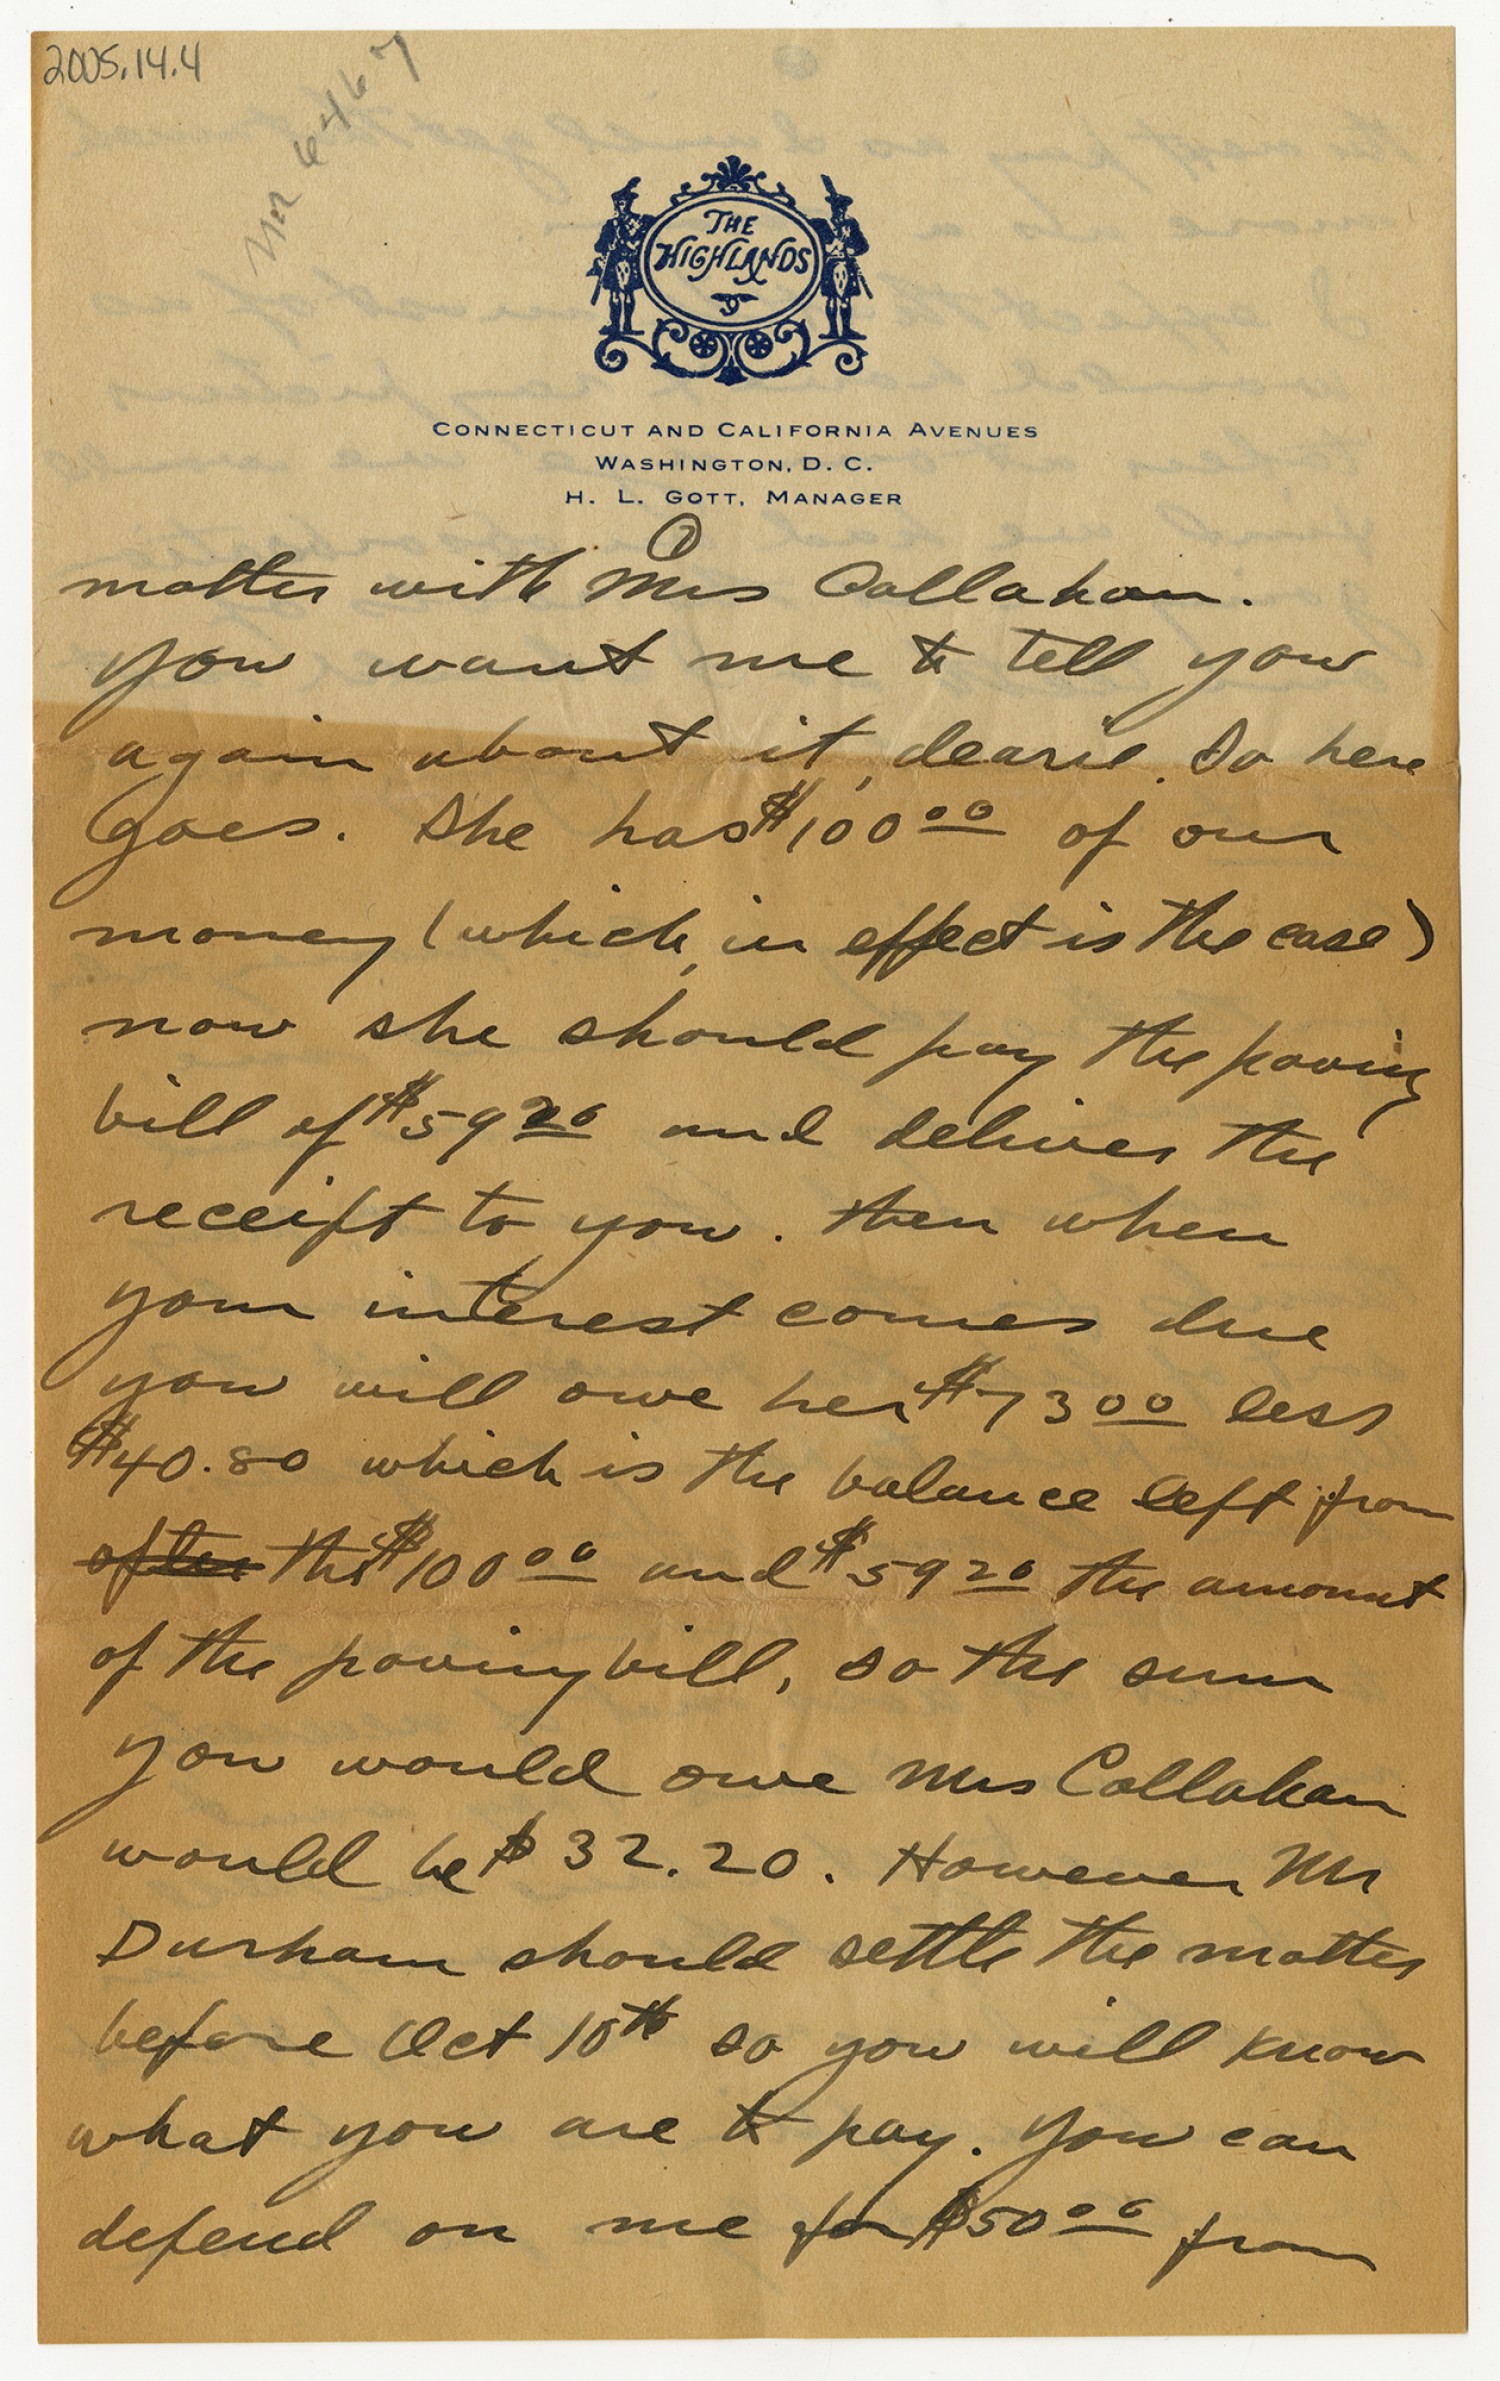 2005.14.4
THE
HIGHLANDS
CONNECTICUT AND CALIFORNIA AVENUES
WASHINGTON, D. C.
H. L. GOTT, MANAGER
matter with Mrs Callahan.
You want me to tell you
again about it, dearie. So here
Goes. She has $100.00 of our
money (which, in effect is the case)
now she should pay the paving
bill of $59 20 and deliver the
receipt to you. then when
your interest comes due
you will owe her $73 00 less
$40.80 which is the balance left from
after the $100 00 and $59 20 the amount
of the paving bill, so the sum
you would owe Mrs Callahan
would be $32.20. However Mr
Durham should settle the matter
before Oct 10th so you will know
what you are to pay. You can
depend on me for $50 00 from